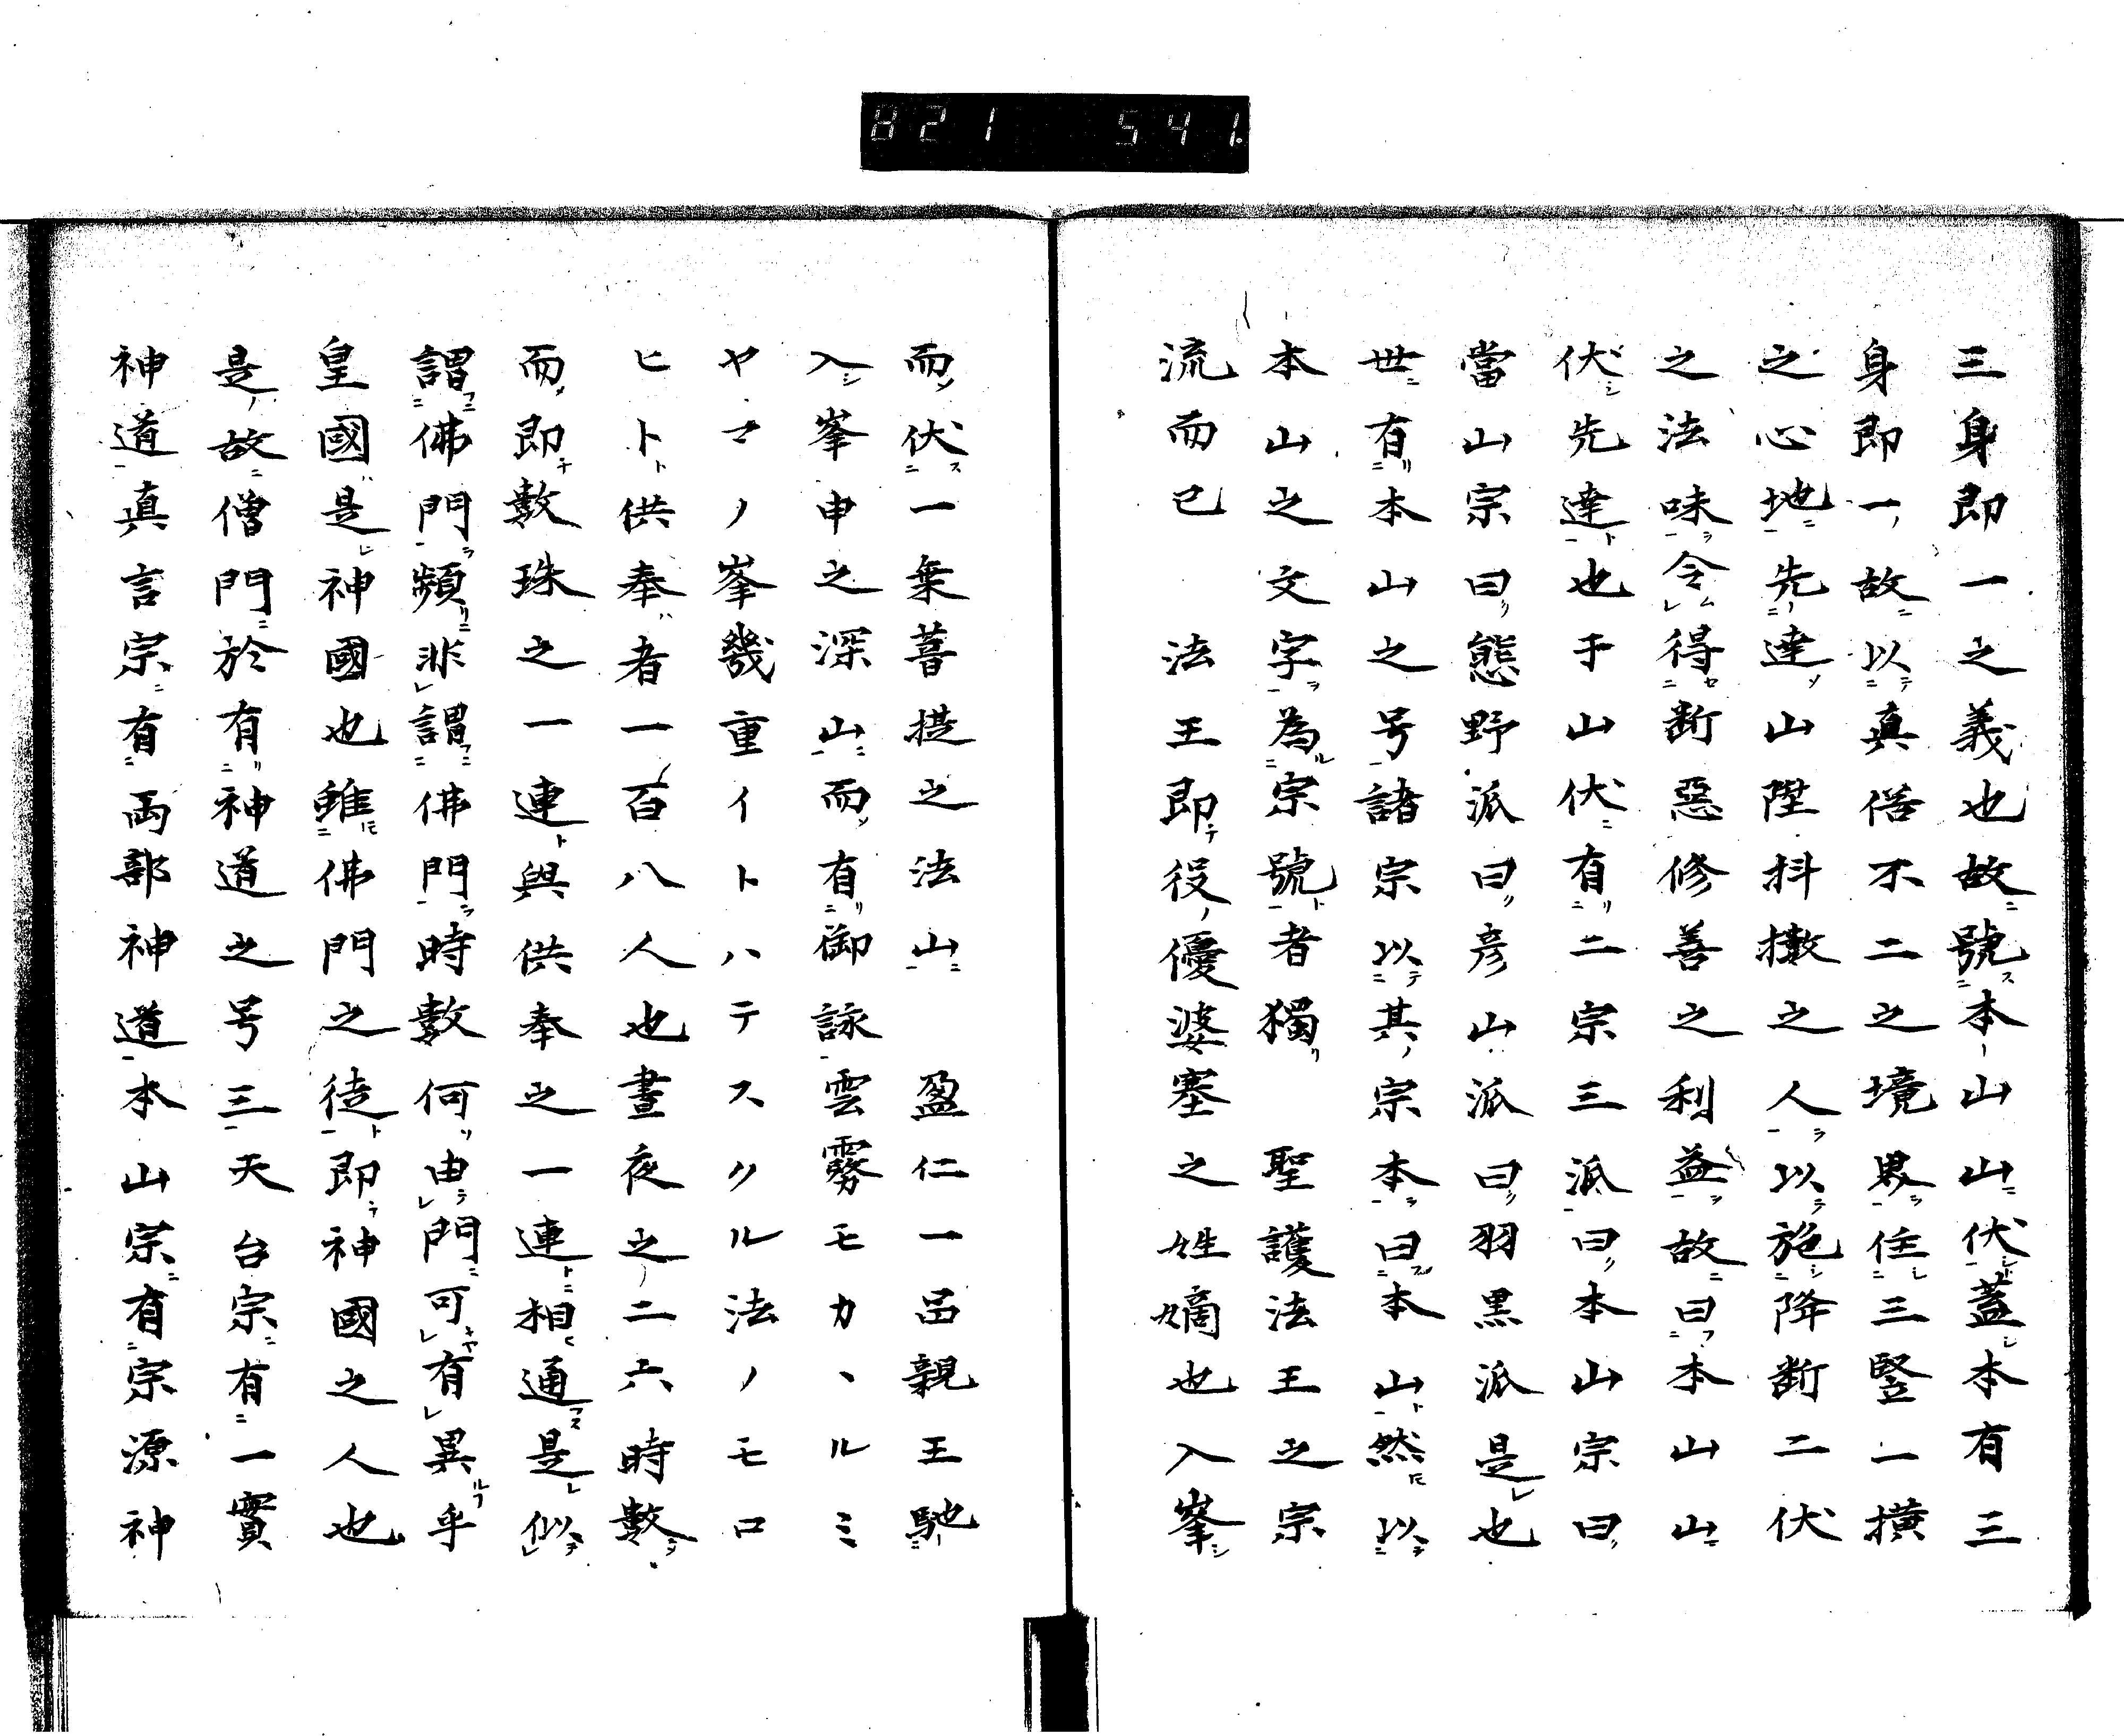 821 541.
三身即一之義也故號本山山伏蓋本有三
身即一故以真俗不二之境界住三竪一横
之心地先達山陞抖擻之人以施降断二伏
之法味令得断惡修善之利益故曰本山山
伏先達也于山伏有二宗三派曰本山宗曰
當山宗曰熊野派曰彦山派曰羽黒派是也
世有本山之号諸宗以其宗本曰本山然以
本山之文字為宗號者獨　聖護法王之宗
流而已　法王即役優婆塞之姓嫡也入峯
而伏一乗菩提之法山　盈仁一品親王馳
入峯中之深山而有御詠雲霧モカヽルミ
ヤマノ峯幾重イトハテスクル法ノモロ
ヒト供奉者一百八人也晝夜之二六時數
而即數珠之一連與供奉之一連相通是似
謂佛門頻非謂佛門時數何由門可有異乎
皇國是神國也雖佛門之徒即神國之人也
是故僧門於有神道之号三天台宗有一實
神道真言宗有両部神道本山宗有宗源神